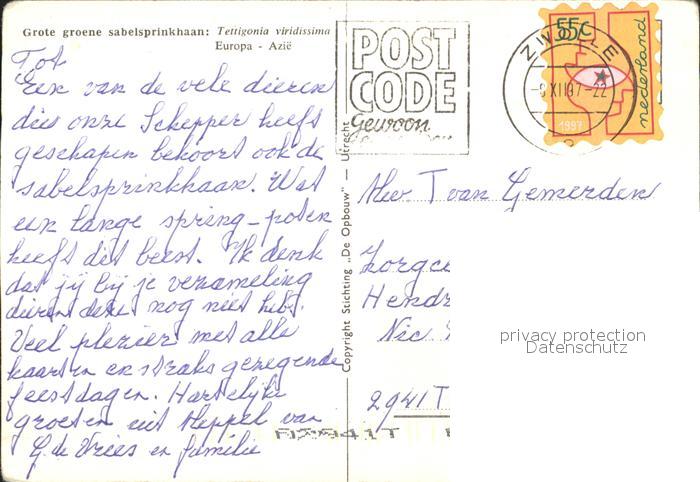 Grote groene sabelsprinkhaan: Tettigonia viridissima
Europa - Azië
Tof
Een van de vele dieren
dies onze Schepper heeft
geschapen behoort ook de
sabelsprinkhaan. Wat
een lange spring-poten
heeft dit beest. Ik denk
dat jij bij je verzameling
dieren deze nog niet hebt.
Veel plezier met alle
kaarten en straks gezegende
feestdagen. Hartelijke
groeten uit Meppel van
G. de Vries en familie
Copyright Stichting „De Opbouw" — Utrecht
POST
CODE
Gewoon
ZWOLLE
-9 XII 97 - 22
55c
nederland
1997
Mevr T van Gemerden
Hendr
Nic.
2941T
privacy protection
Datenschutz
2941T